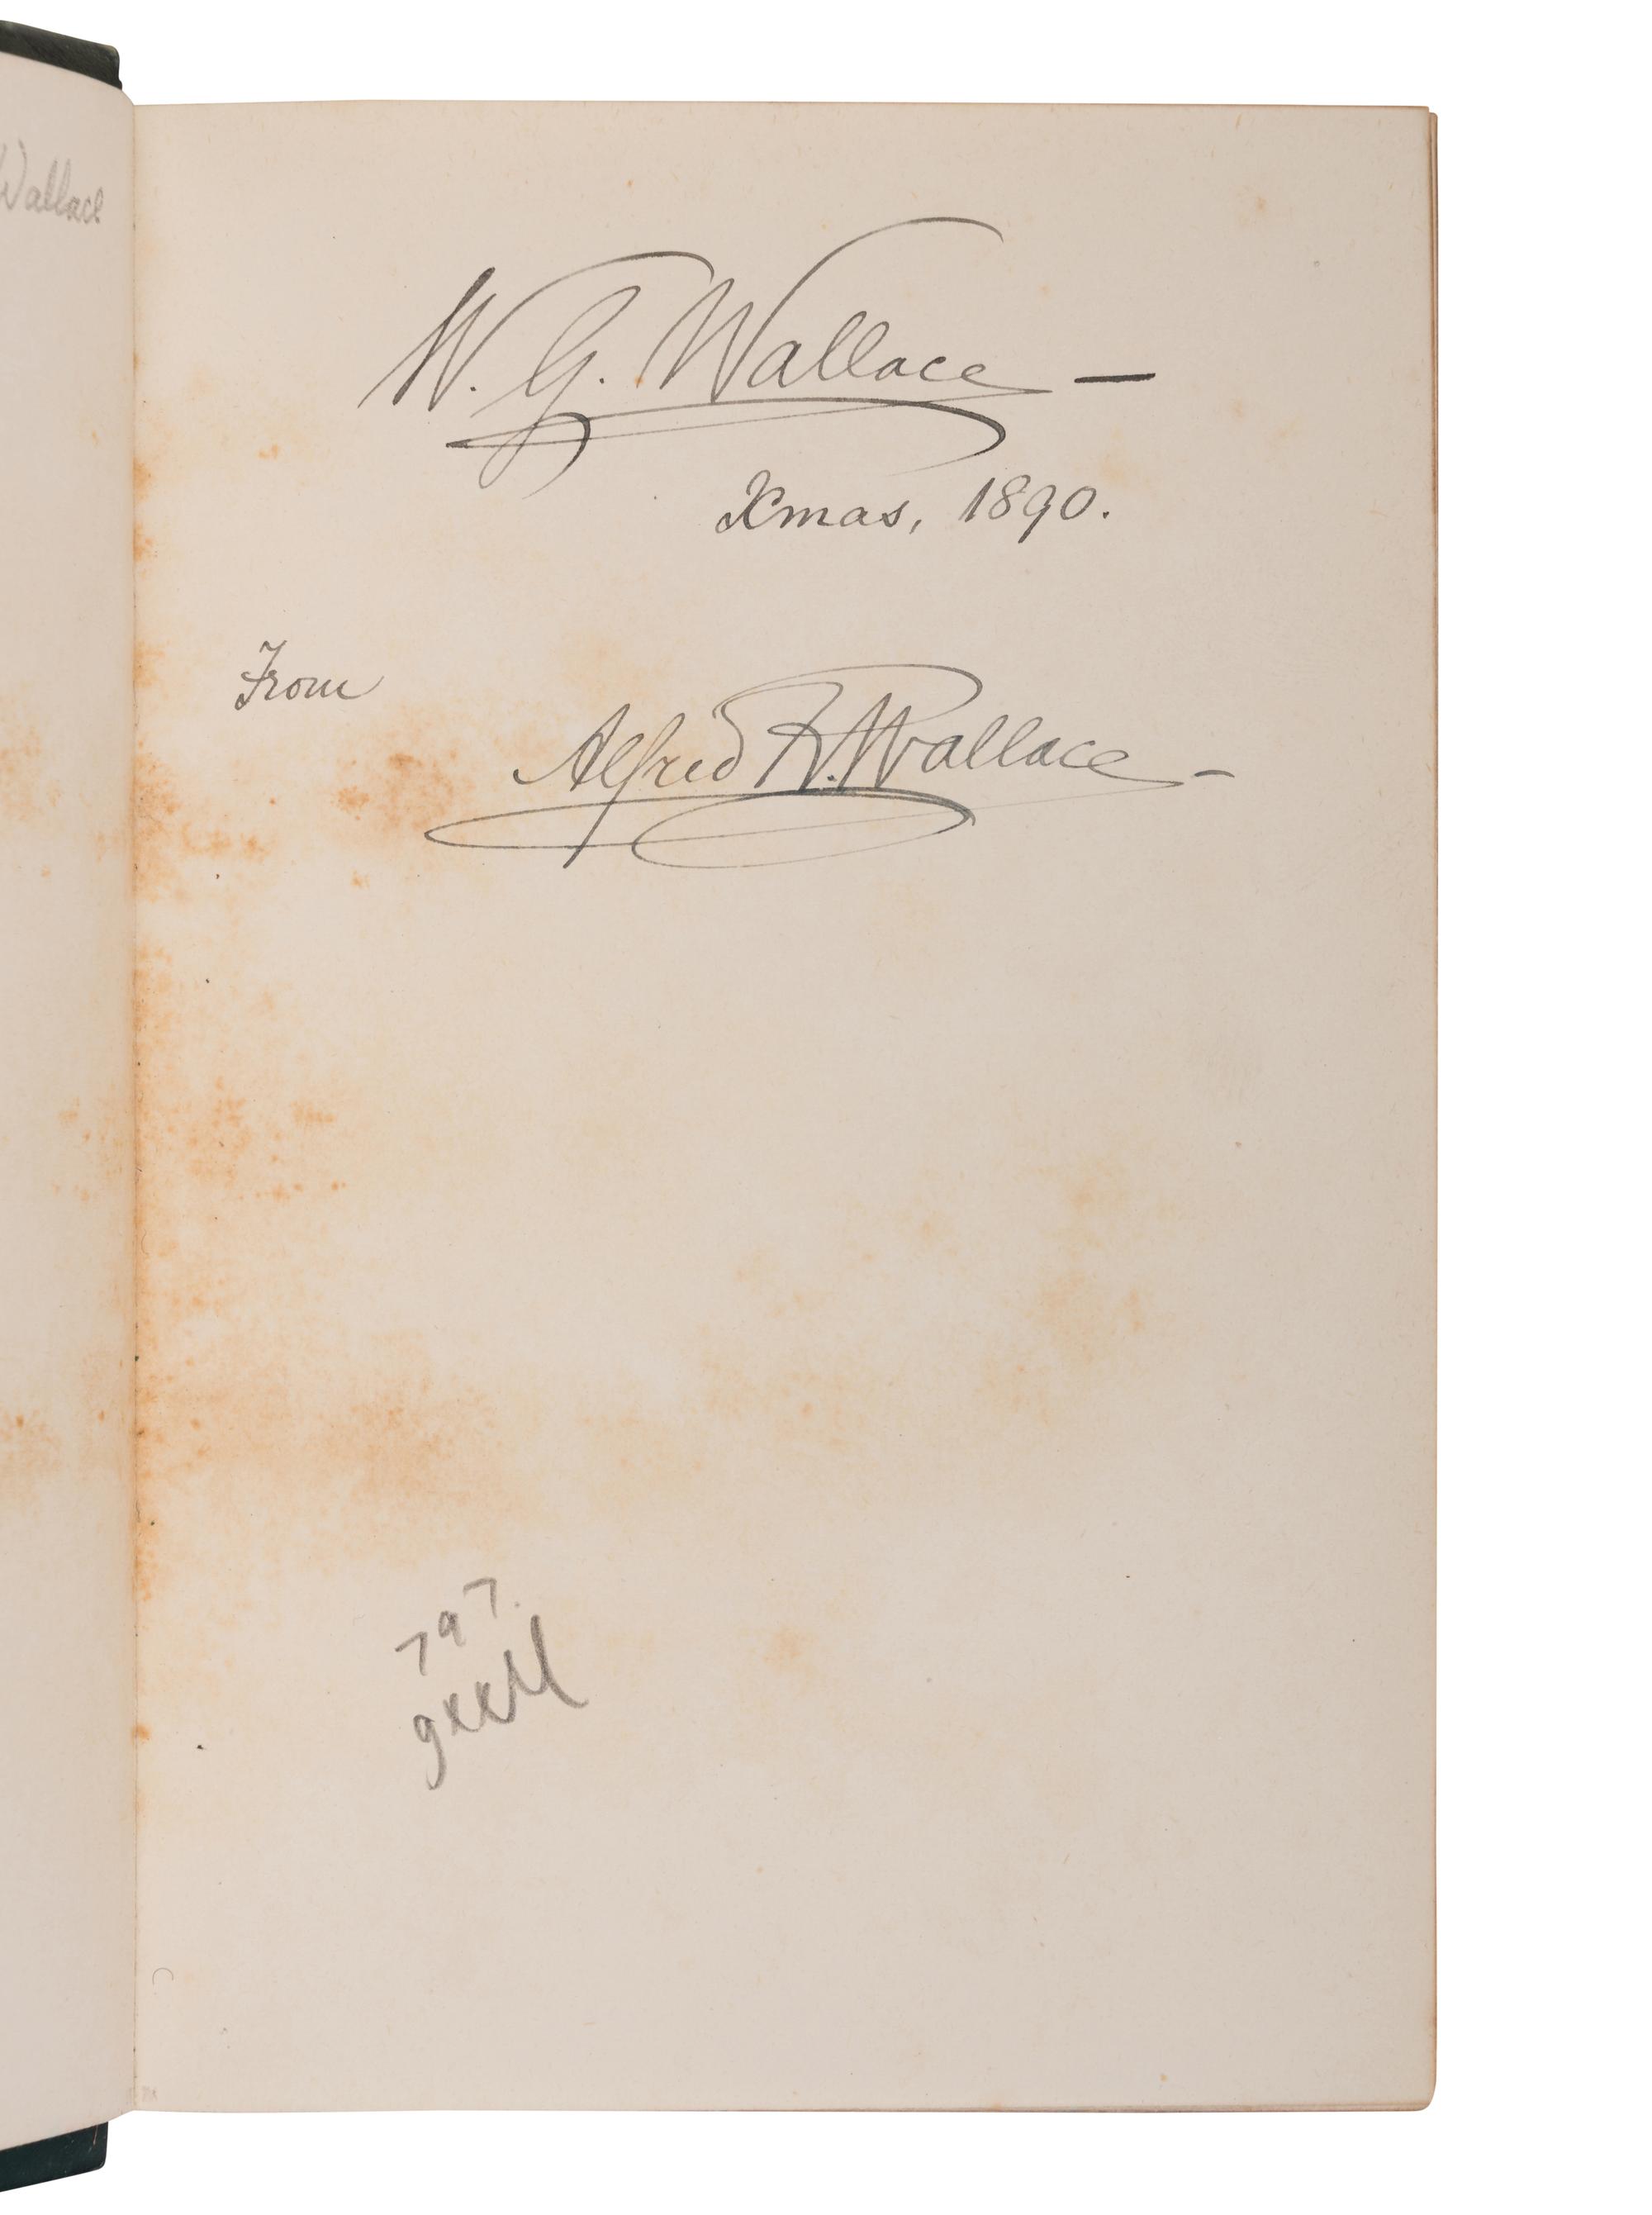 Wallace
W. G. Wallace —
Xmas, 1890.
From
Alfred R. Wallace -
797.